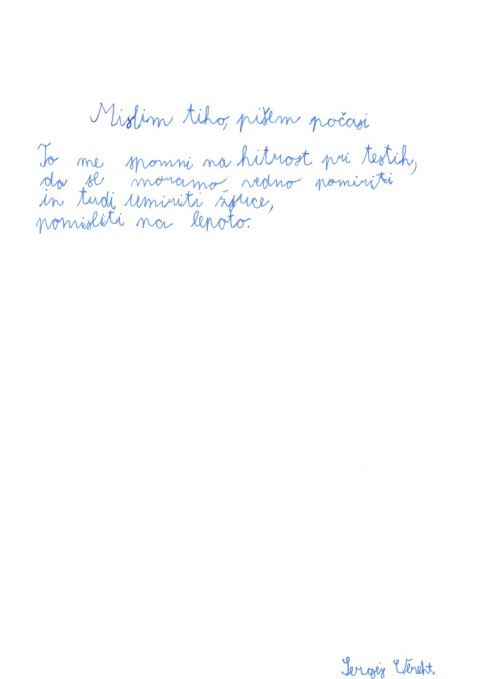 Mislim tiho, pišem počasi
To me spomni na hitrost pri testih,
da se moramo vedno pomiriti
in tudi umiriti živce,
pomisliti na lepoto.
Sergej